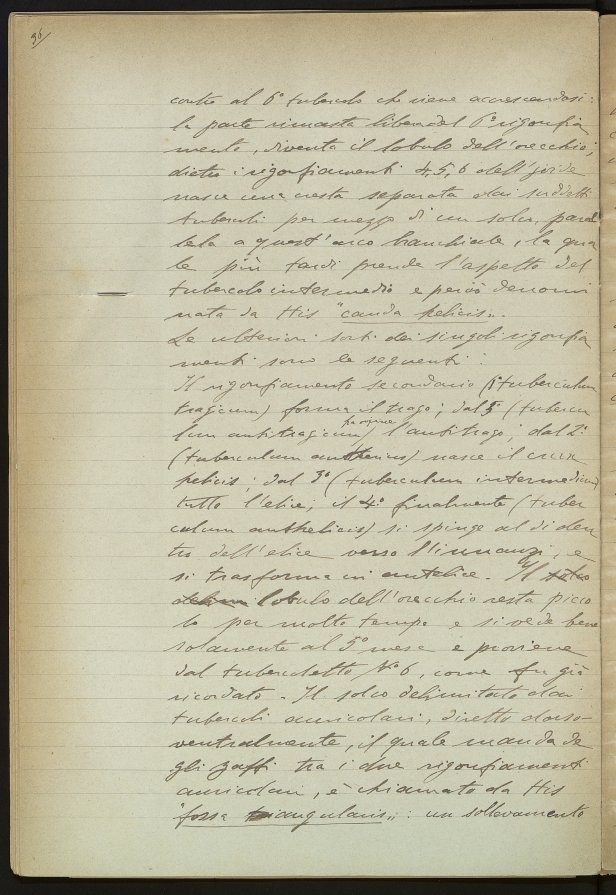 36
contro al 6° tubercolo che viene accrescendosi:
la parte rimasta libera del 6° rigonfia
mento, diventa il lobulo dell'orecchio;
dietro i rigonfiamenti 4, 5, 6 dell'joide
nasce una cresta separata dai suddetti
tubercoli per mezzo di un solco, paral
lela a quest'arco branchiale, la qua
le più tardi prende l'aspetto del
tubercolo intermedio e perciò denomi
nata da His "cauda helicis„.
Le ulteriori sorti dei singoli rigonfia
menti sono le seguenti:
Il rigonfiamento secondario (1° tuberculum
tragicum) forma il trago; dal 5° (tubercu
lum antitragicum) ha origine l'antitrago; dal 2°
(tuberculum anterius) nasce il crus
helicis; dal 3° (tuberculum intermedium)
tutto l'elice; il 4° finalmente (tuber
culum anthelicis) si spinge al di den
tro dell'elice verso l'innanzi, e
si trasforma in antelice. Il
lobulo dell'orecchio resta picco
lo per molto tempo e si vede bene
solamente al 5° mese e proviene
dal tubercoletto N.° 6, come fu già
ricordato. Il solco delimitato dai
tubercoli auricolari, diretto dorso-
ventralmente, il quale manda de
gli zaffi tra i due rigonfiamenti
auricolari, è chiamato da His
"fossa triangularis„: un sollevamento